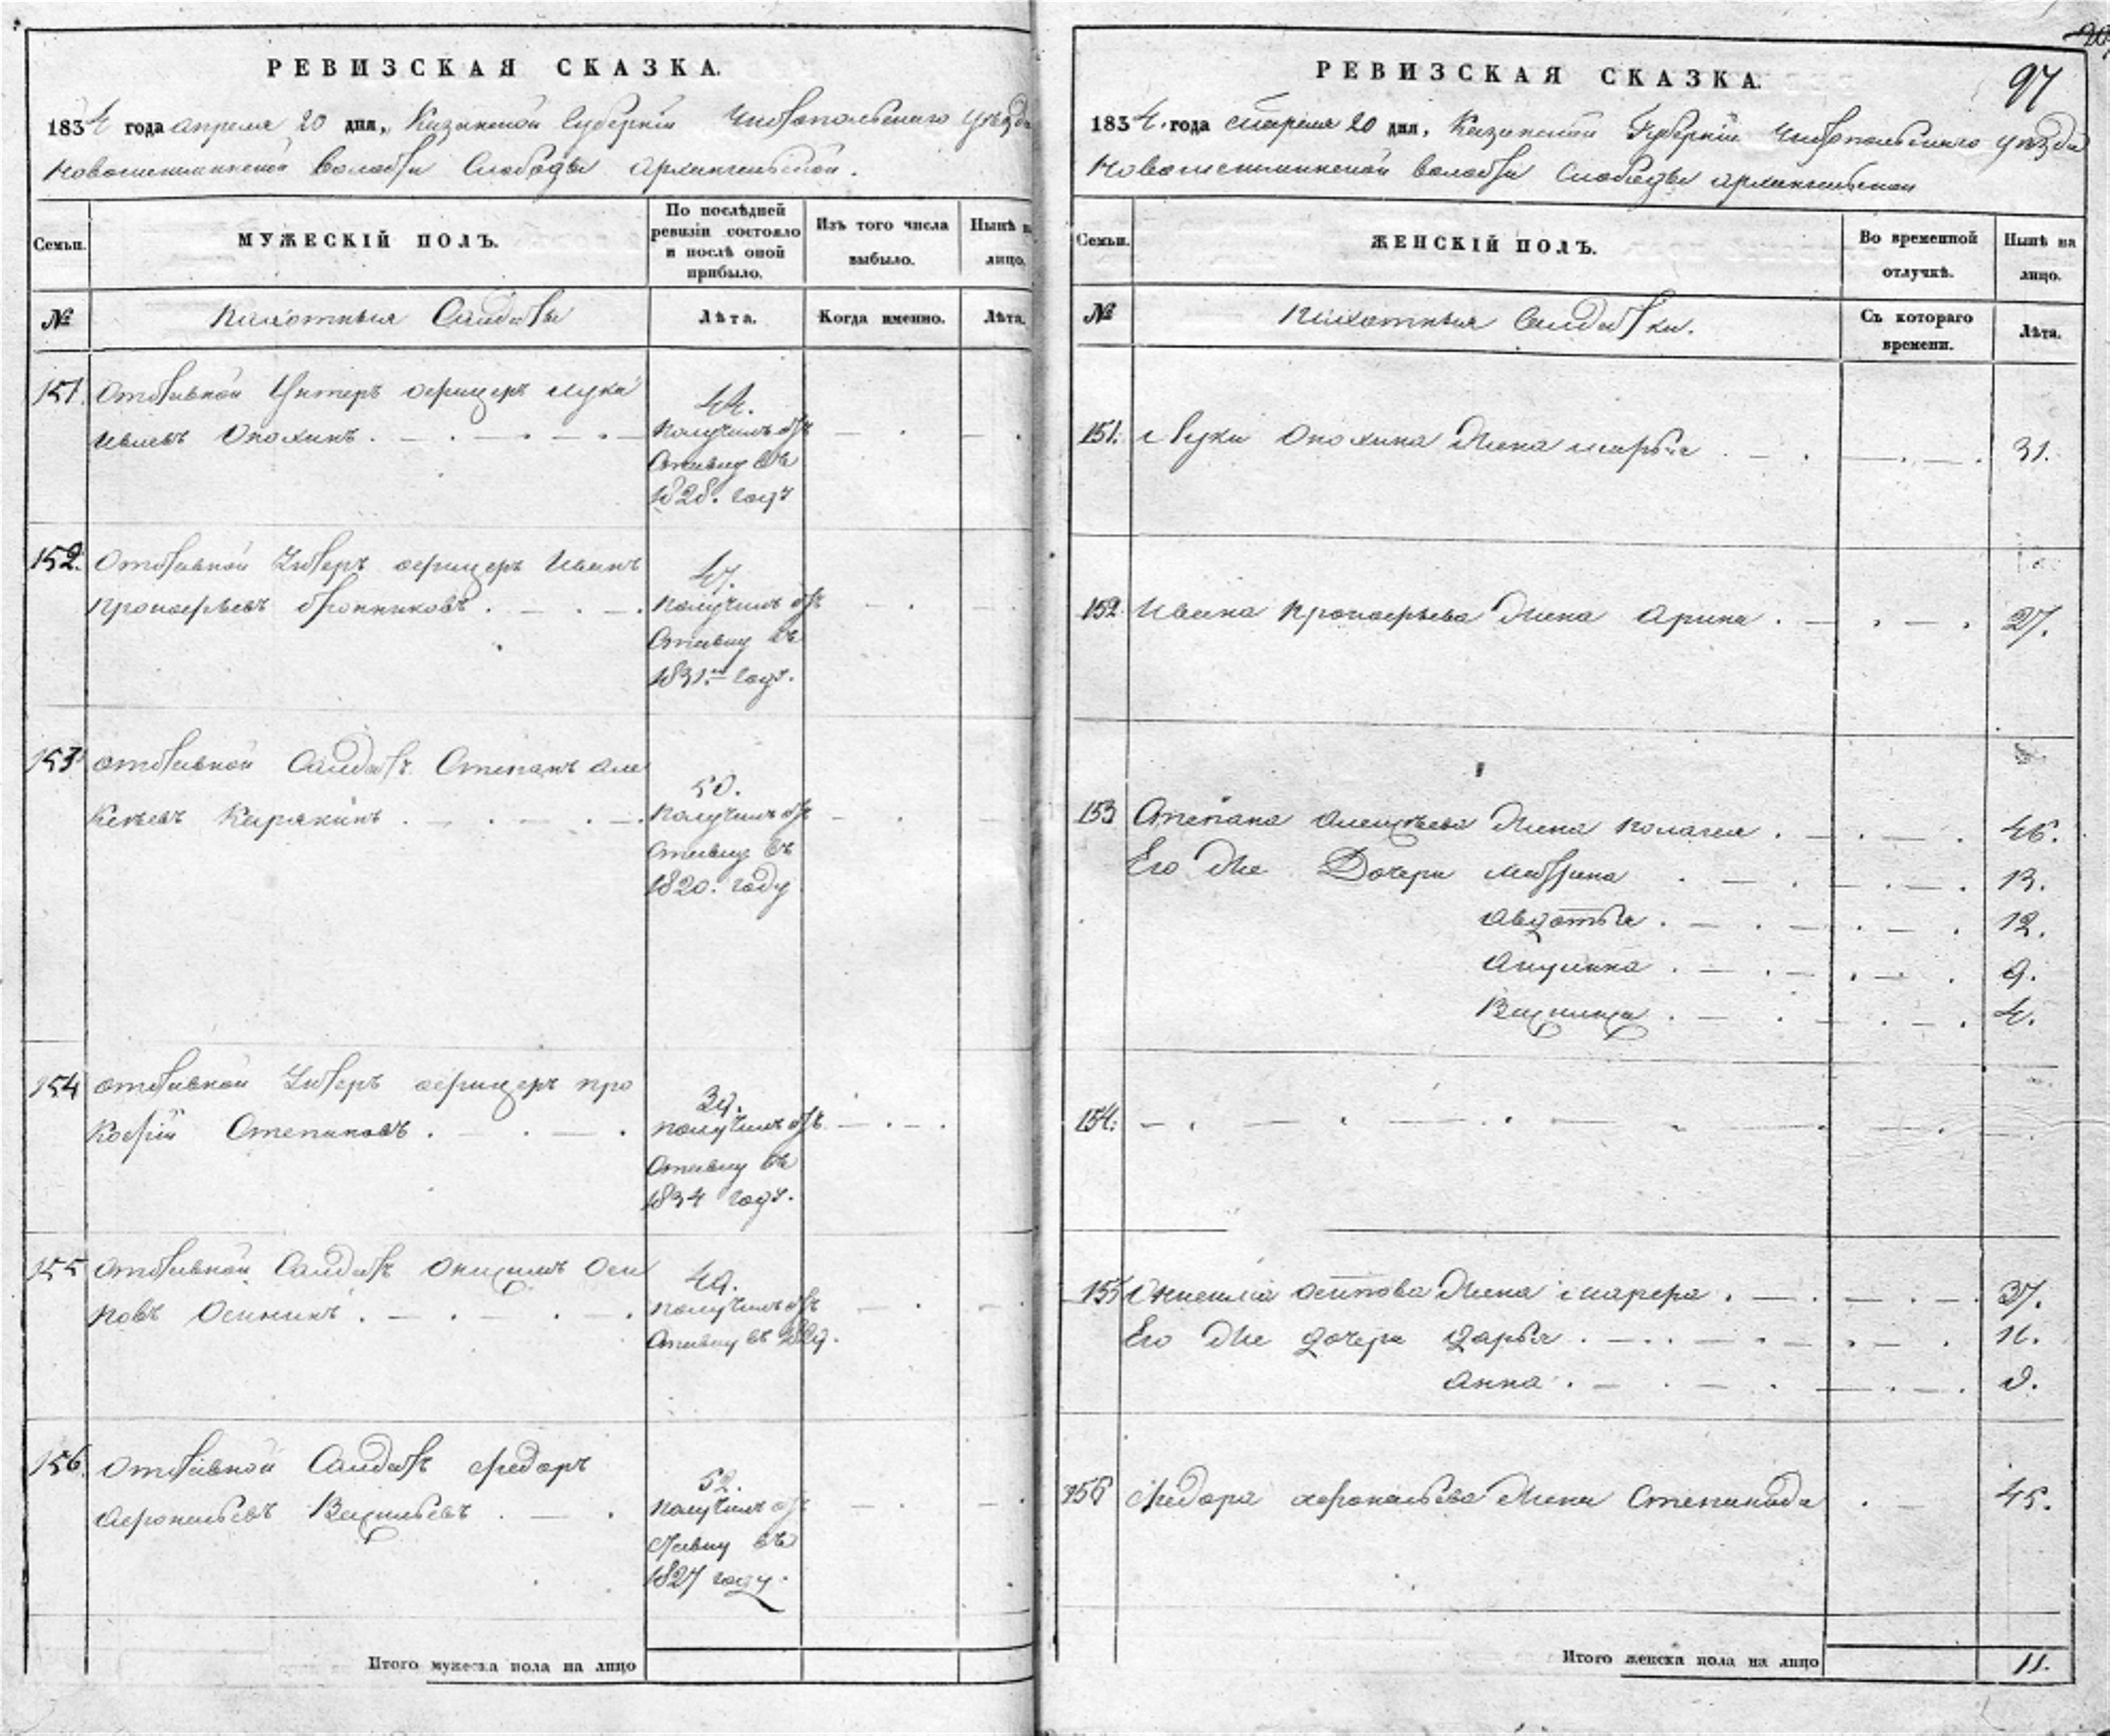 РЕВИЗСКАЯ СКАЗКА.
1834 года апреля 20 дня, Казанской Губернiи Чистопольскаго уѣзда
Новошешминской волости Слободы Архангельской.
Семьи. МУЖЕСКIЙ ПОЛЪ. По послѣдней ревизiи состояло и послѣ оной прибыло. Изъ того числа выбыло. Нынѣ на лицо.
№ Пахотныя Салдаты Лѣта. Когда именно. Лѣта.
151. Отставной Унтеръ офицеръ Лука
Ивлевъ Опохинъ. 44.
Получилъ от
ставку въ
1828. году
152. Отставной Унтеръ офицеръ Иванъ
Прокофьевъ Бронниковъ. 47.
Получилъ от
ставку въ
1831.м году.
153 отставной Салдатъ Степанъ Але
Кеѣевъ Карякинъ. 50.
Получилъ от
ставку въ
1820. году
154 отставной Унтеръ офицеръ Про
Кофiй Степановъ. 39.
получилъ от
ставку въ
1834 году.
155 отставной Салдатъ Онисимъ Оси
повъ Осининъ. 49.
получилъ от
ставку въ
156. Отставной Салдатъ Федоръ
Афонасьевъ Васильевъ. 52.
Получилъ от
ставку въ
1827 году.
Итого мужеска пола на лицо
97
РЕВИЗСКАЯ СКАЗКА.
1834. года Апреля 20 дня, Казанской Губернiи Чистопольскаго уѣзда
Новошешминской волости Слободы Архангельской
Семьи. ЖЕНСКIЙ ПОЛЪ. Во временной отлучкѣ. Нынѣ на лицо.
№ Пахотныя Салдатки. Съ котораго времени. Лѣта.
151. Луки Опохина Жена Марья 31.
152 Ивана Прокофьева Жена Арина. 27.
153 Степана Алексѣева Жена Пелагея. 46.
Его Же Дочери Матрина 13.
Авдотья. 12.
Акулина. 9.
Василиса. 4.
154.
155 Онисима Осипова Жена Марфа. 37.
Его Же дочери Дарья. 11.
Анна. 9.
156 Федора Афонасьева Жена Степанида 45.
Итого женска пола на лицо 11.